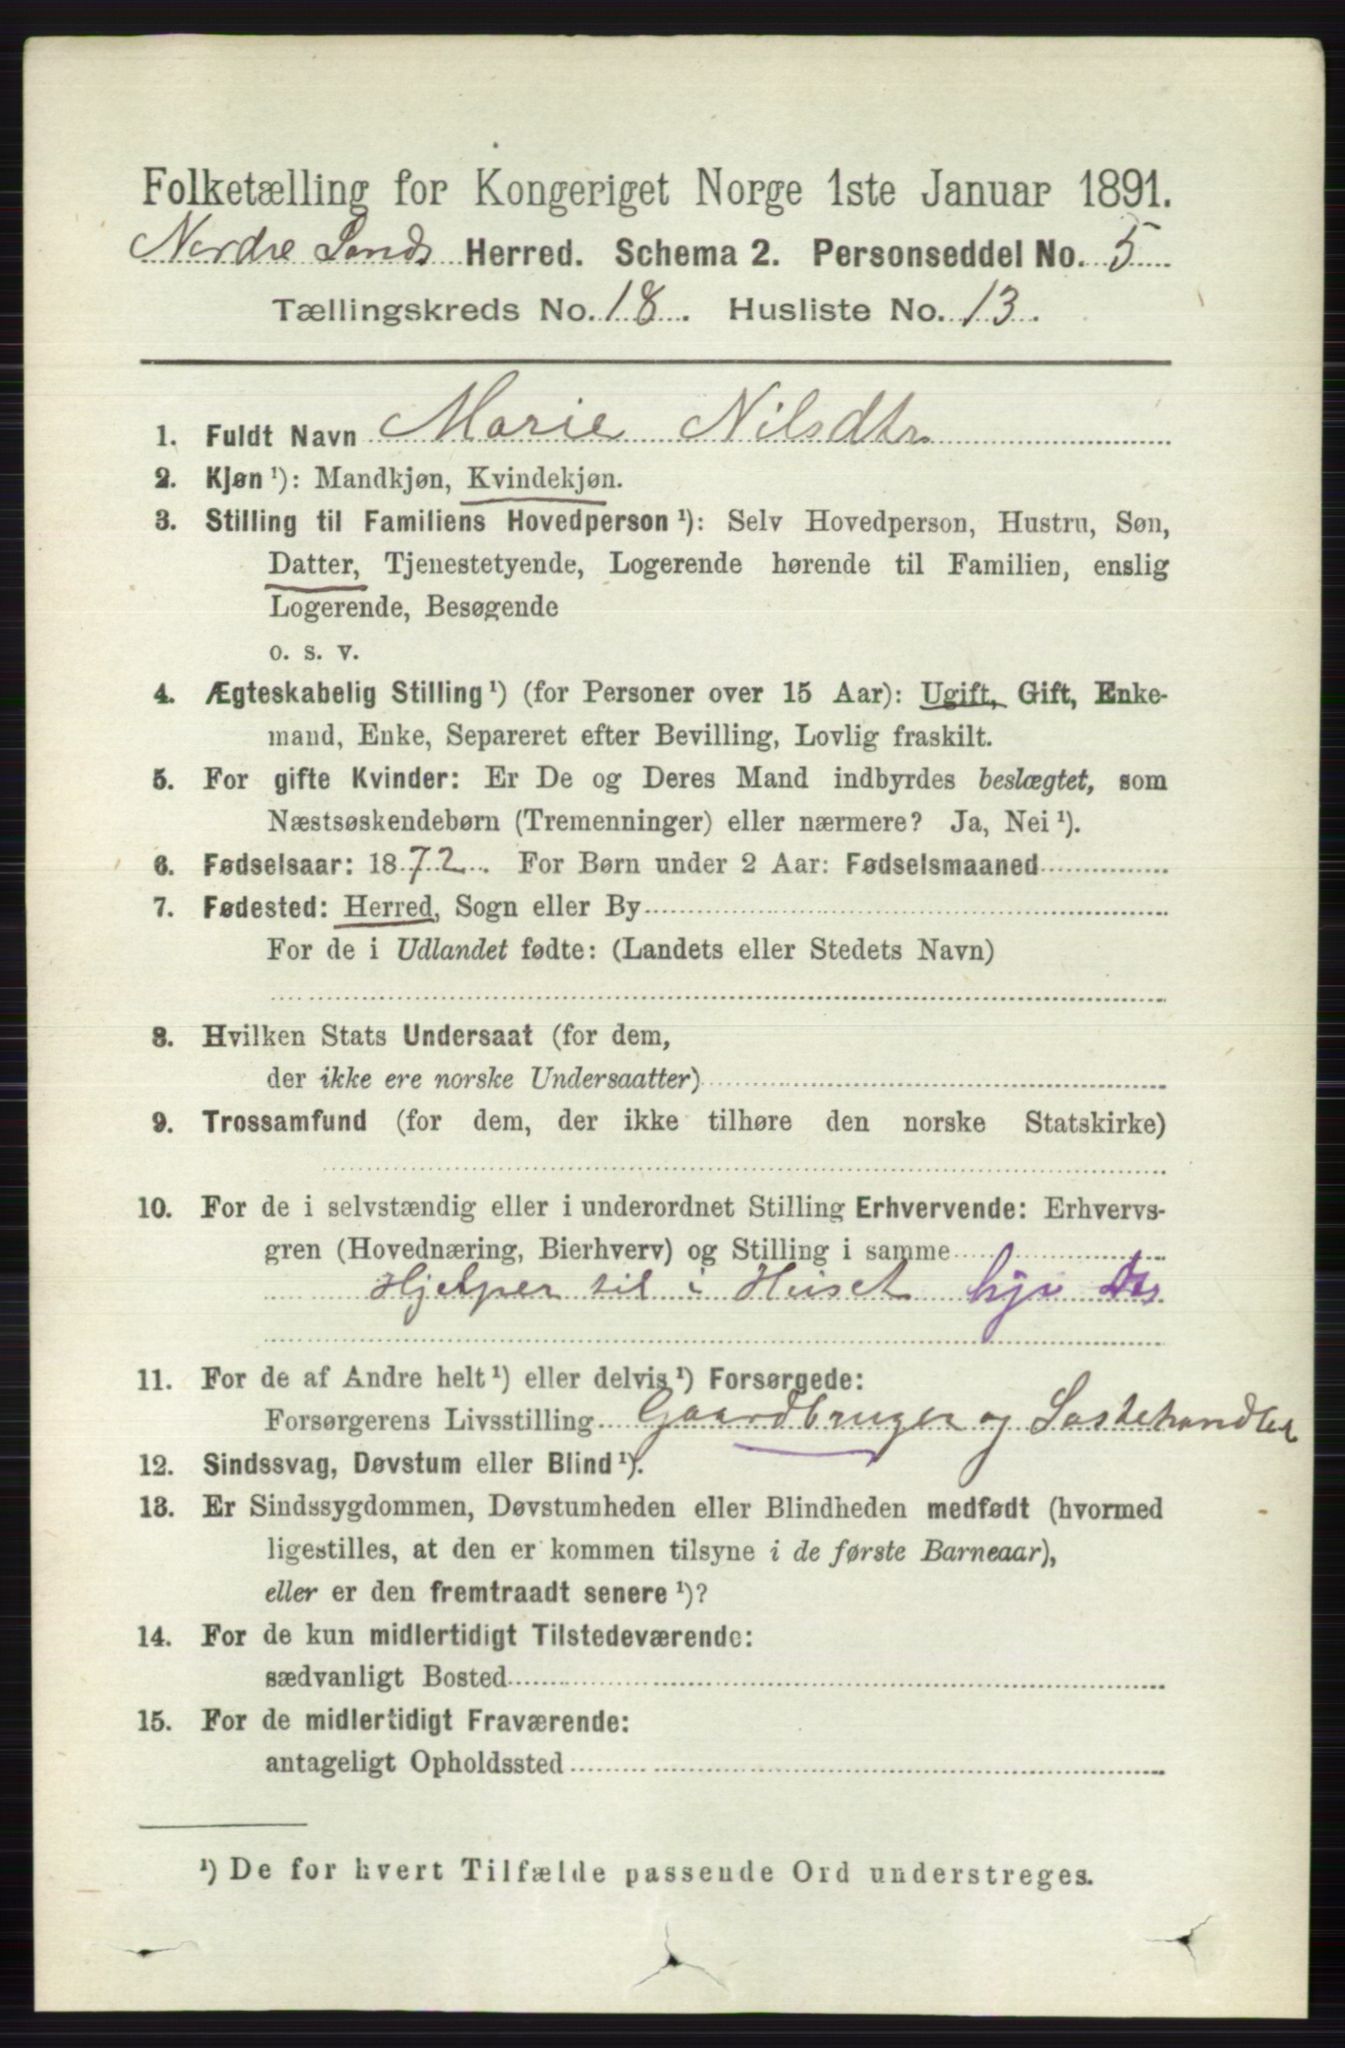 Folketælling for Kongeriget Norge 1ste Januar 1891.
Nordre Lands Herred. Schema 2. Personseddel No. 5
Tællingskreds No. 18. Husliste No. 13.
1. Fuldt Navn Marie Nilsdtr
2. Kjøn ¹): Mandkjøn, Kvindekjøn.
3. Stilling til Familiens Hovedperson ¹): Selv Hovedperson, Hustru, Søn,
Datter, Tjenestetyende, Logerende hørende til Familien, enslig
Logerende, Besøgende
o. s. v.
4. Ægteskabelig Stilling ¹) (for Personer over 15 Aar): Ugift, Gift, Enke-
mand, Enke, Separeret efter Bevilling, Lovlig fraskilt.
5. For gifte Kvinder: Er De og Deres Mand indbyrdes beslægtet, som
Næstsøskendebørn (Tremenninger) eller nærmere? Ja, Nei ¹).
6. Fødselsaar: 1872. For Børn under 2 Aar: Fødselsmaaned
7. Fødested: Herred, Sogn eller By
For de i Udlandet fødte: (Landets eller Stedets Navn)
8. Hvilken Stats Undersaat (for dem,
der ikke ere norske Undersaatter)
9. Trossamfund (for dem, der ikke tilhøre den norske Statskirke)
10. For de i selvstændig eller i underordnet Stilling Erhvervende: Erhvervs-
gren (Hovednæring, Bierhverv) og Stilling i samme
Hjelper til i Huset
11. For de af Andre helt ¹) eller delvis ¹) Forsørgede:
Forsørgerens Livsstilling Gaardbruger og
12. Sindssvag, Døvstum eller Blind ¹).
13. Er Sindssygdommen, Døvstumheden eller Blindheden medfødt (hvormed
ligestilles, at den er kommen tilsyne i de første Barneaar),
eller er den fremtraadt senere ¹)?
14. For de kun midlertidigt Tilstedeværende:
sædvanligt Bosted
15. For de midlertidigt Fraværende:
antageligt Opholdssted
¹) De for hvert Tilfælde passende Ord understreges.